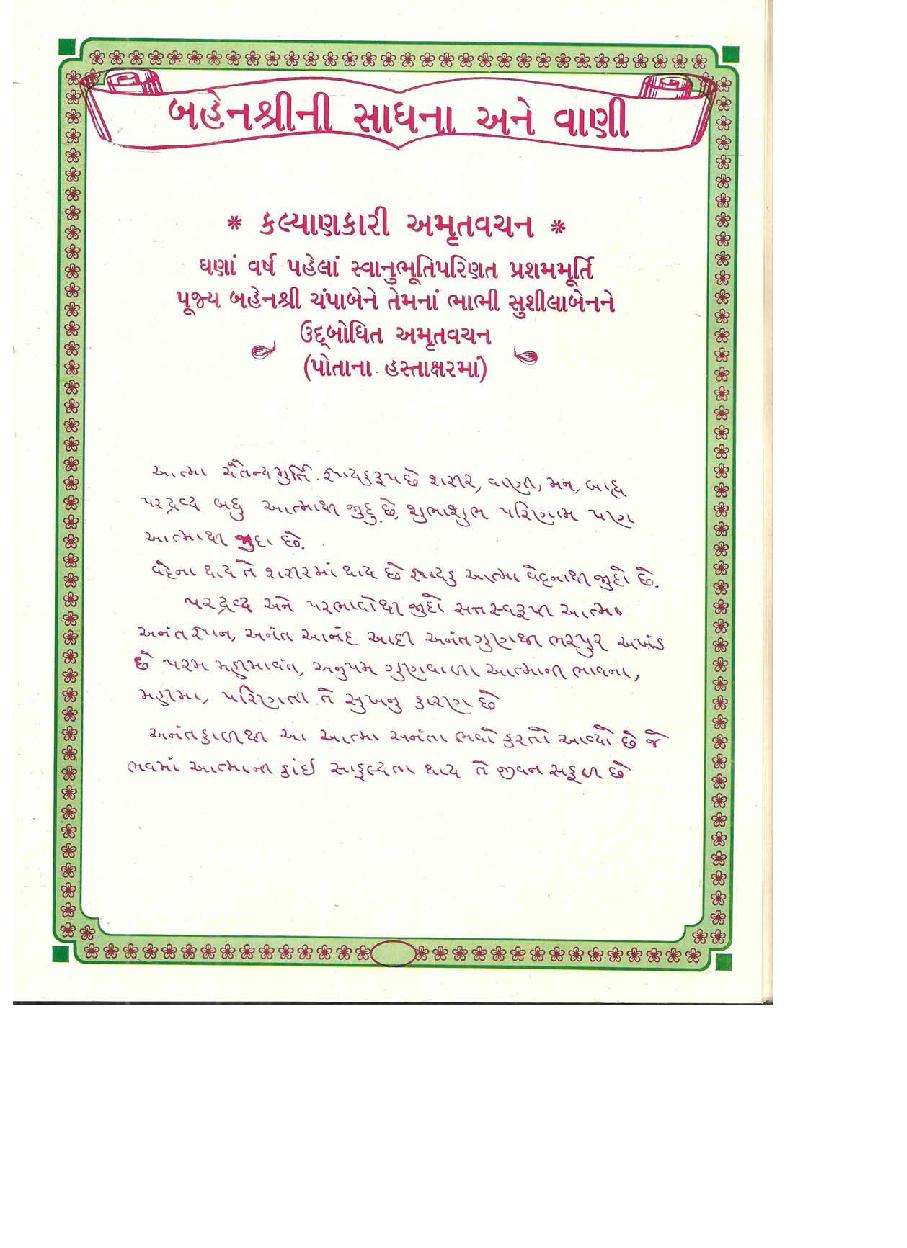 બહેનશ્રીની સાધના અને વાણી
* કલ્યાણકારી અમૃતવચન *
ઘણાં વર્ષ પહેલાં સ્વાનુભૂતિપરિણત પ્રશમમૂર્તિ
પૂજ્ય બહેનશ્રી ચંપાબેને તેમનાં ભાભી સુશીલાબેનને
ઉદ્‌બોધિત અમૃતવચન
(પોતાના હસ્તાક્ષરમાં)
આત્મા ચૈતન્યમુર્તિ જ્ઞાયકરૂપ છે શરીર, વાણી, મન, બાહ્ય
પરદ્રવ્ય બધુ આત્માથી જુદુ છે, શુભાશુભ પરિણામ પણ
આત્માથી જુદા છે.
વેદના થાય તે શરીરમાં થાય છે જ્ઞાયક આત્મા વેદનાથી જુદો છે.
પરદ્રવ્ય અને પરભાવોથી જુદો સત્તસ્વરૂપી આત્મા
અનંતજ્ઞાન, અનંત આનંદ આદી અનંતગુણથી ભરપુર અખંડ
છે પરમ મહીમાવંત, અનુપમ ગુણવાળા આત્માની ભાવના,
મહીમા, પરિણતી તે સુખનુ કારણ છે
અનંતકાળથી આ આત્મા અનંતા ભવો કરતો આવ્યો છે જે
ભવમાં આત્માની કાંઈ સાફલ્યતા થાય તે જીવન સફળ છે